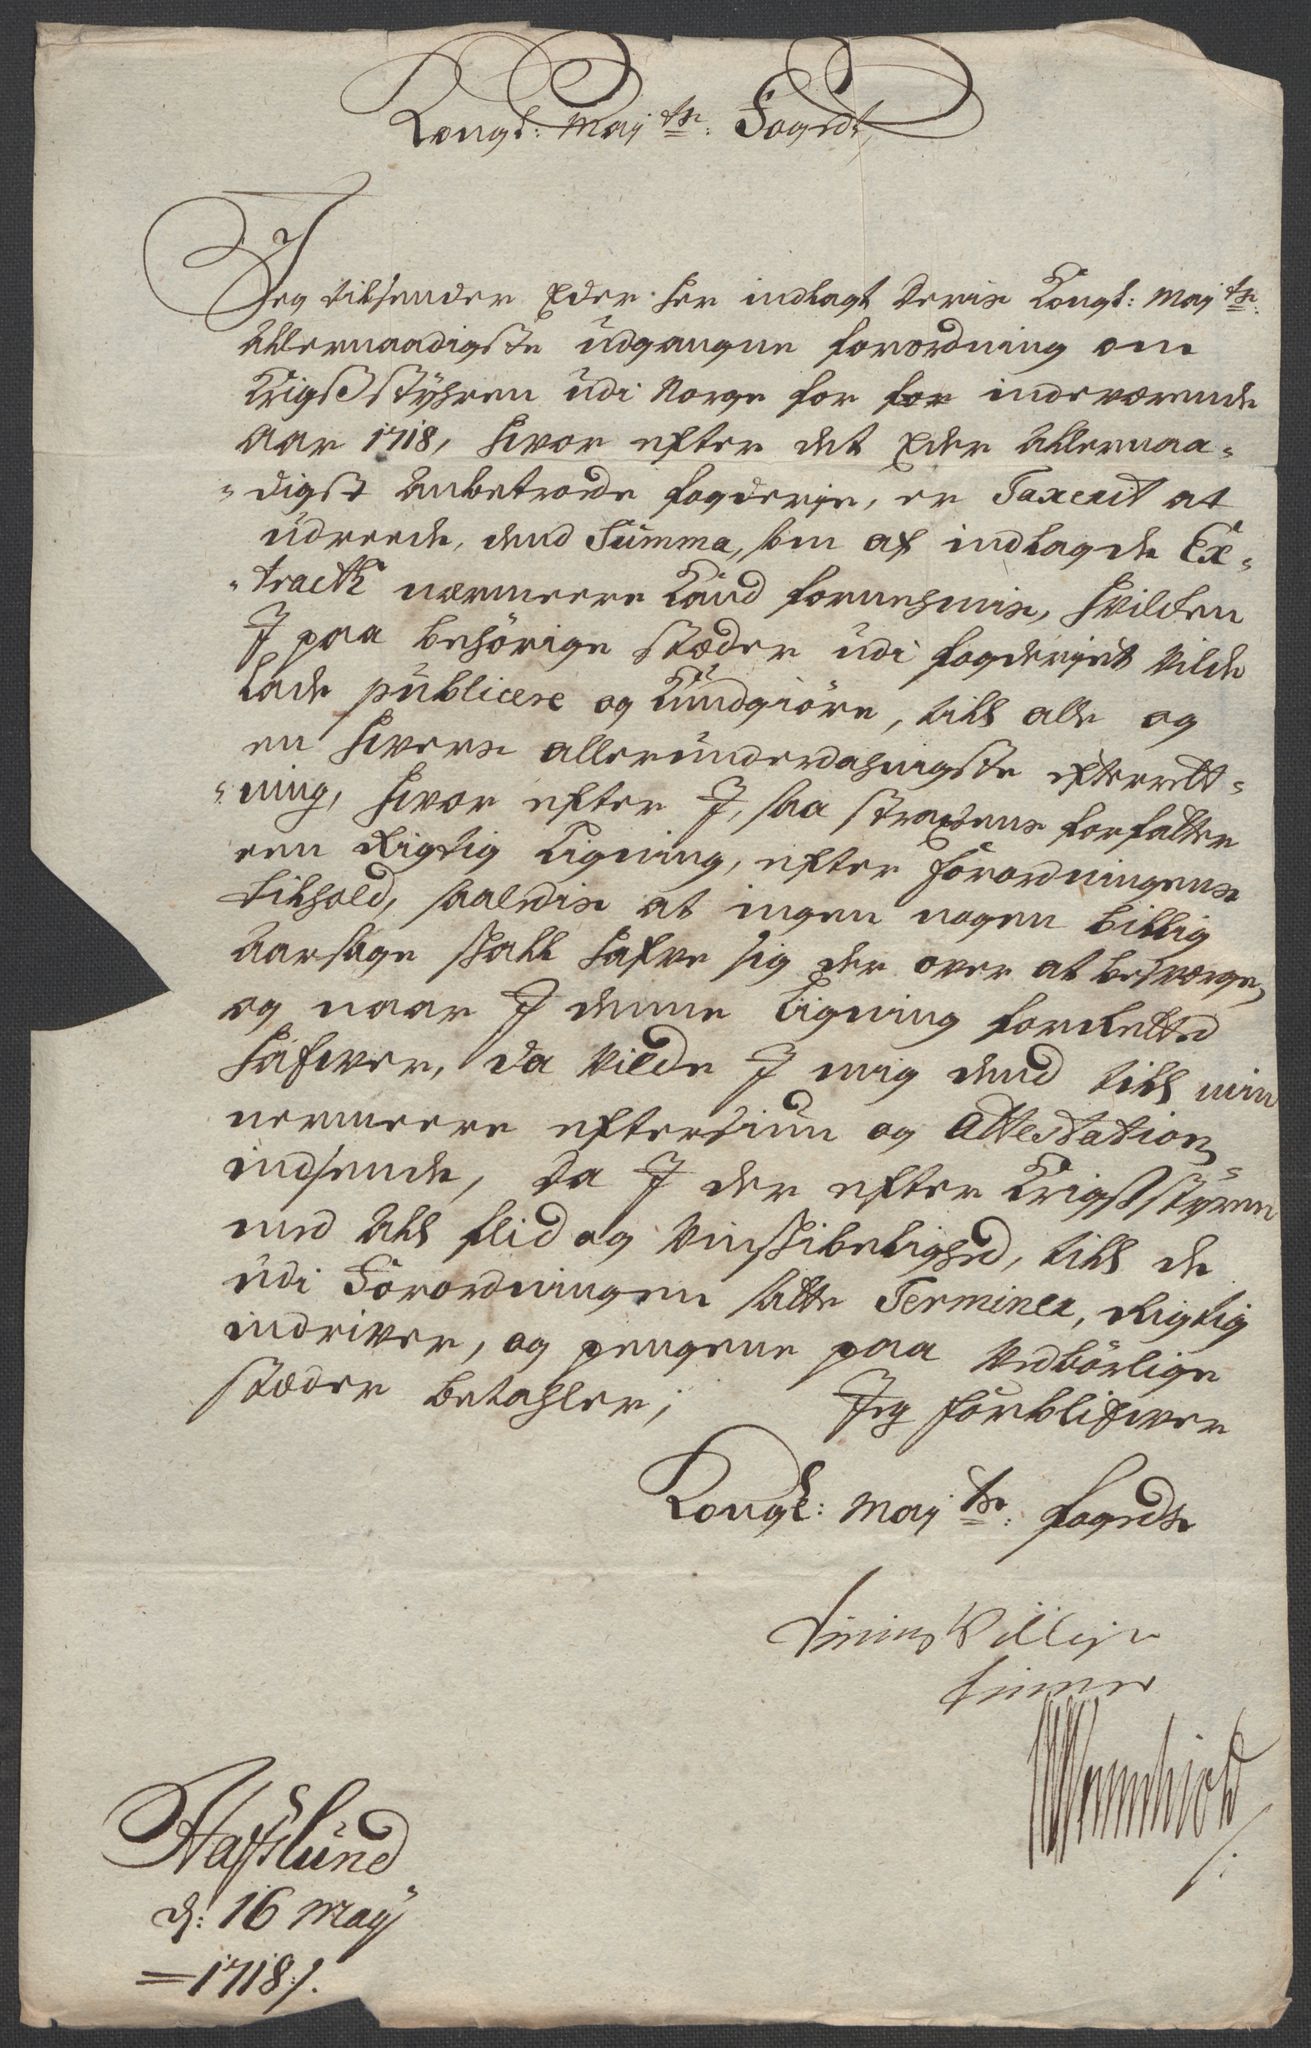 Kongl: Maj:ts: Fogedt,
Jeg tilsender Eder her indlagt deris Kongl: Maj:ts:
Allernaadigste udgangne forordning om
Krigsstyhren udi Norge for for indeværende
Aar 1718, hvor efter det Eder Allernaa-
-digst Anbetroede fogderje, er Taxerit at
udreede, dend Summa, som af indlagde Ex-
-tracth nærmeere kand fornehmis, hvilchen
J paa behörige stæder udi fogderjet vilde
lade publicere og kundgiöre, till alle og
en hvers allerunderdahnigste efterrett-
-ning, hvor efter J, saa straxens forfatter
een Rigtig Ligning, efter Forordningens
tilhold, saaledis at ingen nogen billig
Aarsage skall hafve sig der over at besværge,
og naar J denne Ligning forrettet
hafver, da vilde J mig dend till min
nermeere eftersiun og Attestation,
indsende, da J der efter Krigsstyren
med All flid og vinskibelighed, till de
udi Forordningen satte Terminer, Rigtig
indriver, og pengene paa vedbörlige
stæder betahler; Jeg forblifver
Kongl: Maj:ts: fogeds
tienstvillige
tiener
WWernschiold
Hafslund
d: 16 Maÿ
=1718/.